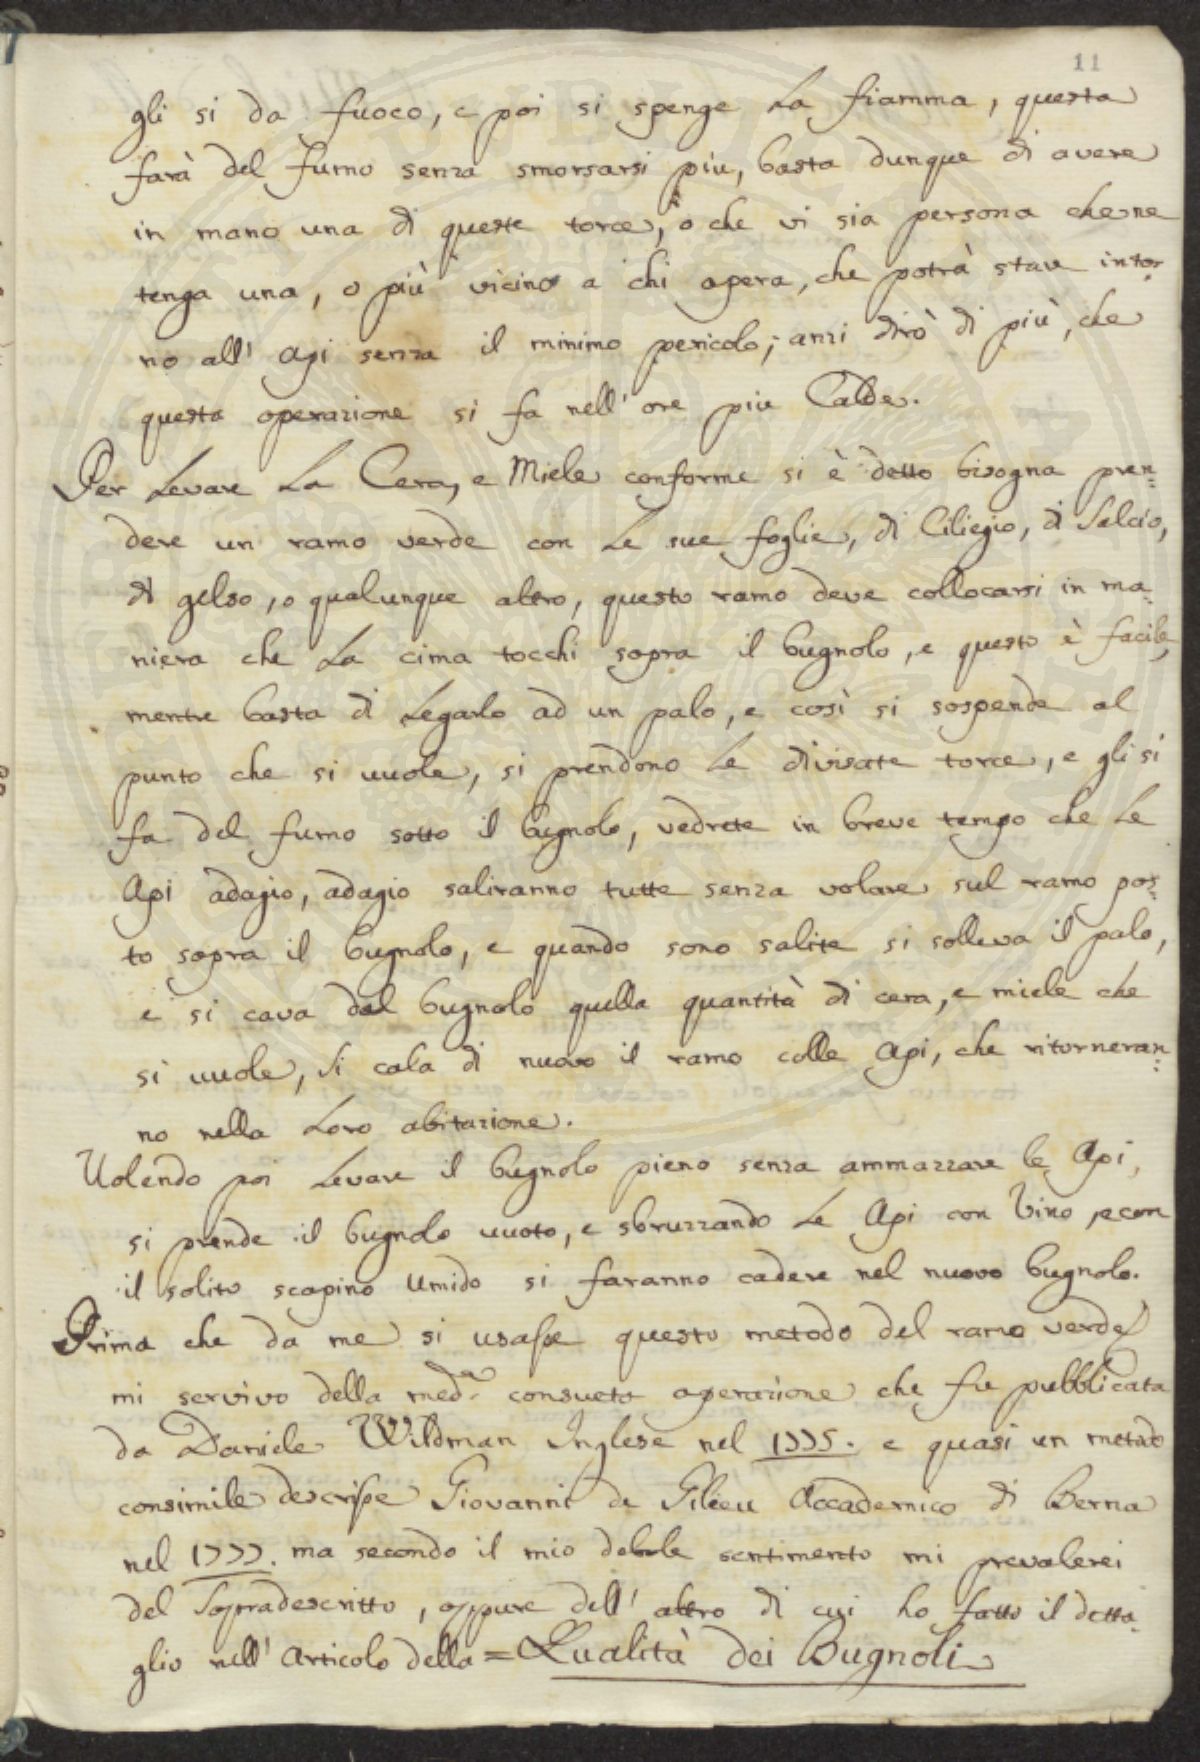 11
gli si da fuoco, e poi si spenge La fiamma, questa
farà del fumo senza smorsarsi piu, basta dunque di avere
in mano una di queste torce, o che vi sia persona che ne
tenga una, o più vicino a chi opera, che potrà stare intor-
no all' Api senza il minimo pericolo; anzi dirò di più, che
questa operazione si fa nell' ore piu Calde.
Per Levare La Cera, e Miele conforme si è detto bisogna pren=
dere un ramo verde con Le sue foglie, di Ciliegio, di Salcio,
di gelso, o qualunque altro, questo ramo deve collocarsi in ma=
niera che La cima tocchi sopra il bugnolo, e questo è facile,
mentre basta di Legarlo ad un palo, e così si sospende al
punto che si vuole, si prendono Le divisate torce, e gli si
fa del fumo sotto il bugnolo, vedrete in breve tempo che Le
Api adagio, adagio saliranno tutte senza volare sul ramo pos=
to sopra il bugnolo, e quando sono salite si solleva il palo,
e si cava dal bugnolo quella quantità di cera, e miele che
si vuole, Si cala di nuovo il ramo colle Api, che ritorneran=
no nella Loro abitazione.
Volendo poi Levare il bugnolo pieno senza ammazzare le Api,
si prende il bugnolo vuoto, e sbruzzando Le Api con Vino, e con
il solito scopino umido si faranno cadere nel nuovo bugnolo.
Prima che da me si usasse questo metodo del ramo verde
mi servivo della medª consueta operazione che fu pubblicata
da Daniele Wildman Inglese nel 1775. e quasi un metodo
consimile descrisse Giovanni de Gilieu Accademico di Berna
nel 1777. ma secondo il mio debole sentimento mi prevalerei
del Sopradescritto, oppure dell' altro di cui ho fatto il detta-
glio nell' Articolo della = Qualità dei Bugnoli